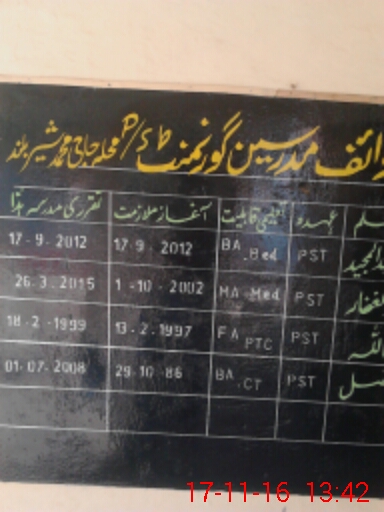 مدرسین گورنمنٹ P/S محلہ حاجی محمد شیر بلند
عہدہ تعلیمی قابلیت آغاز ملازمت تقرری مدرسہ ہذا
PST BA . Bed 17 9 . 2012 17-9 . 2012
PST MA . Med 1 -10 - 2002 26.3.2015
PST FA PTC 13.2.1997 18-2-1999
PST BA . CT 29.10.86 01.07.2008
17-11-16 13:42